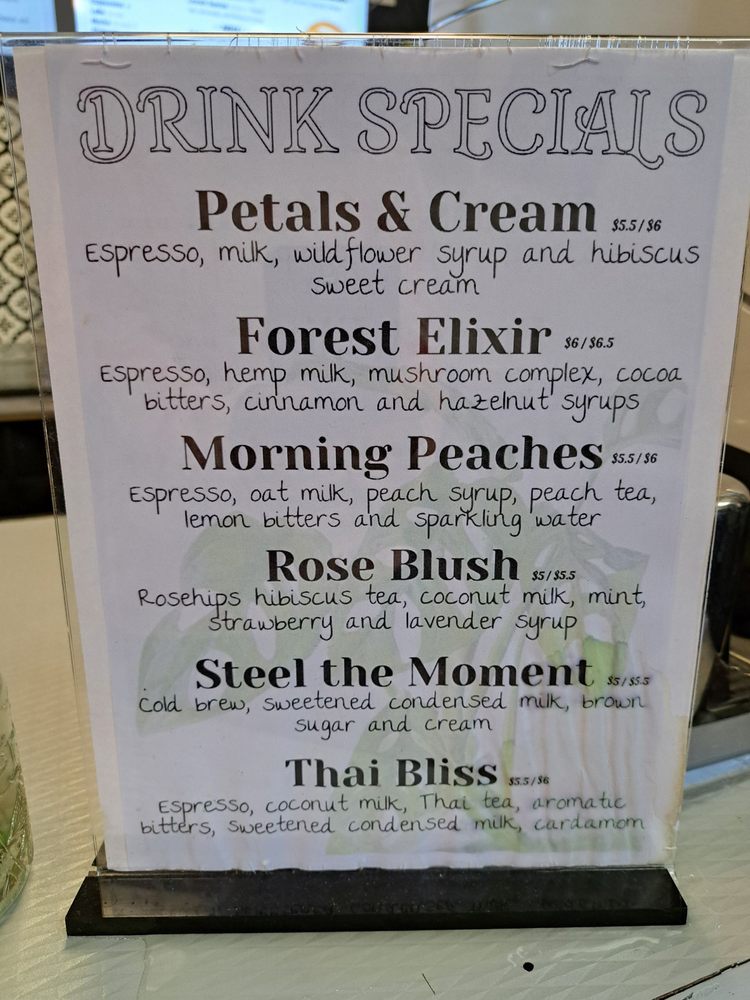 DRINK SPECIALS
Petals & Cream $5.5 / $6
Espresso, milk, wildflower syrup and hibiscus
sweet cream
Forest Elixir $6 / $6.5
Espresso, hemp milk, mushroom complex, cocoa
bitters, cinnamon and hazelnut syrups
Morning Peaches $5.5 / $6
Espresso, oat milk, peach syrup, peach tea,
lemon bitters and sparkling water
Rose Blush $5 / $5.5
Rosehips hibiscus tea, coconut milk, mint,
strawberry and lavender syrup
Steel the Moment $5 / $5.5
Cold brew, sweetened condensed milk, brown
sugar and cream
Thai Bliss $5.5 / $6
Espresso, coconut milk, Thai tea, aromatic
bitters, sweetened condensed milk, cardamom